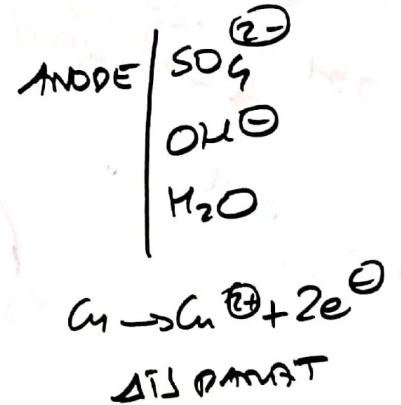 ANODE
SO₄²⁻
OH⁻
H₂O
Cu → Cu²⁺ + 2e⁻